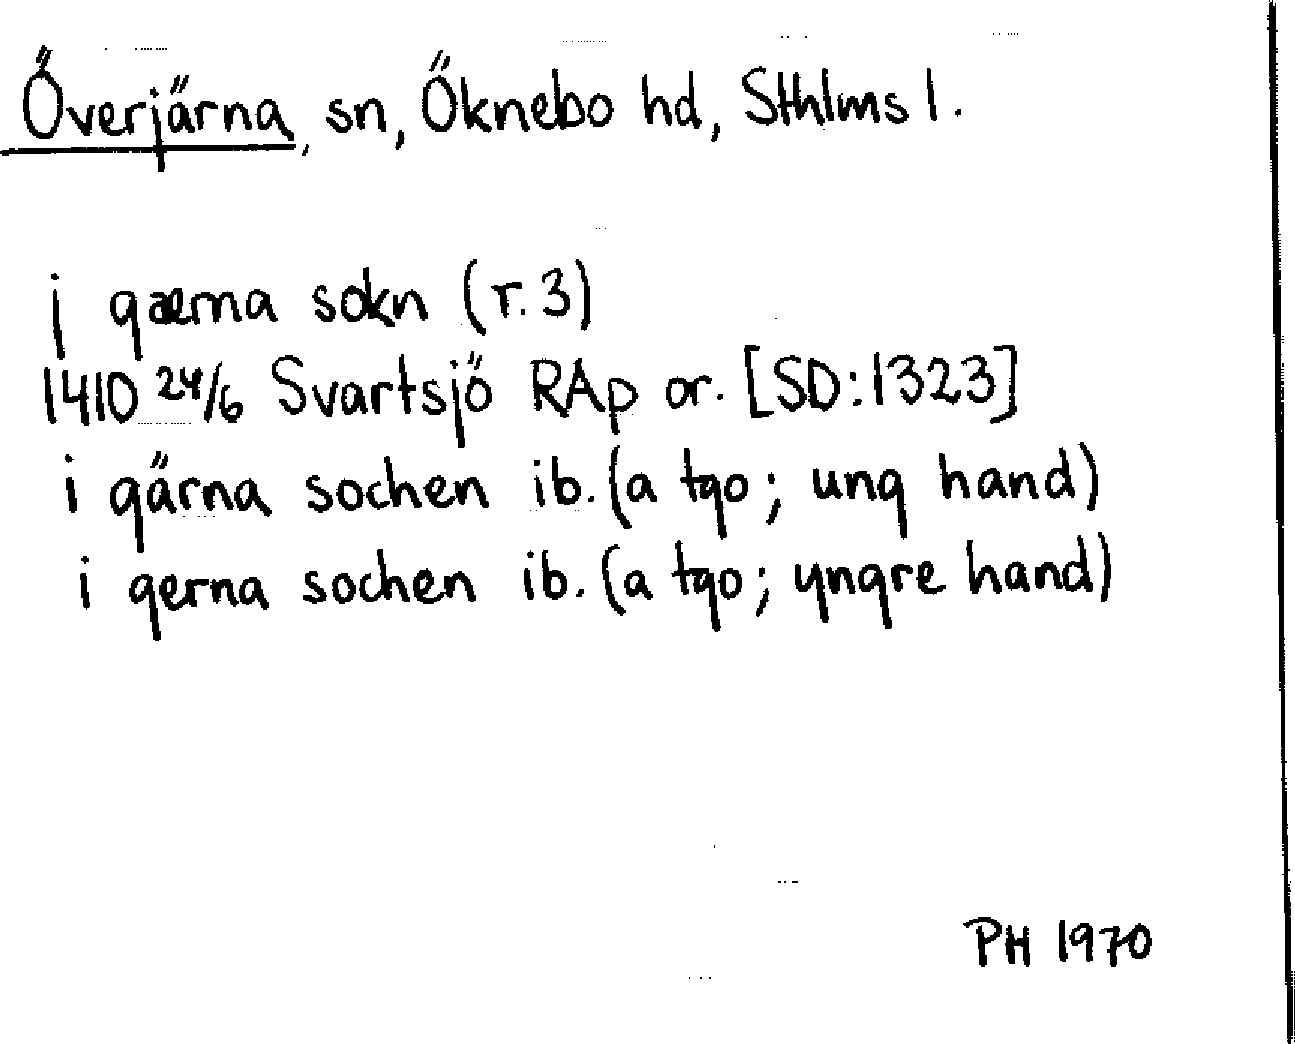 Överjärna, sn, Öknebo hd, Sthlms l.
j gærna sokn (r. 3)
1410 24/6 Svartsjö RAp or. [SD:1323]
i gärna sochen ib. (a tgo; ung hand)
i gerna sochen ib. (a tgo; yngre hand)
PH 1970